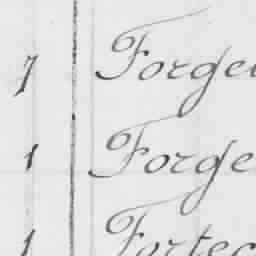 7 Forge
1 Forge
1 Fortec